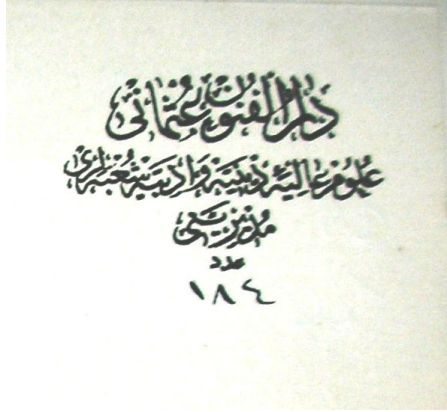 دار الفنون عثمانی
علوم عالیهٔ دینیه و ادبیه شعبه‌لری
مدیریتی
عدد
١٨٤